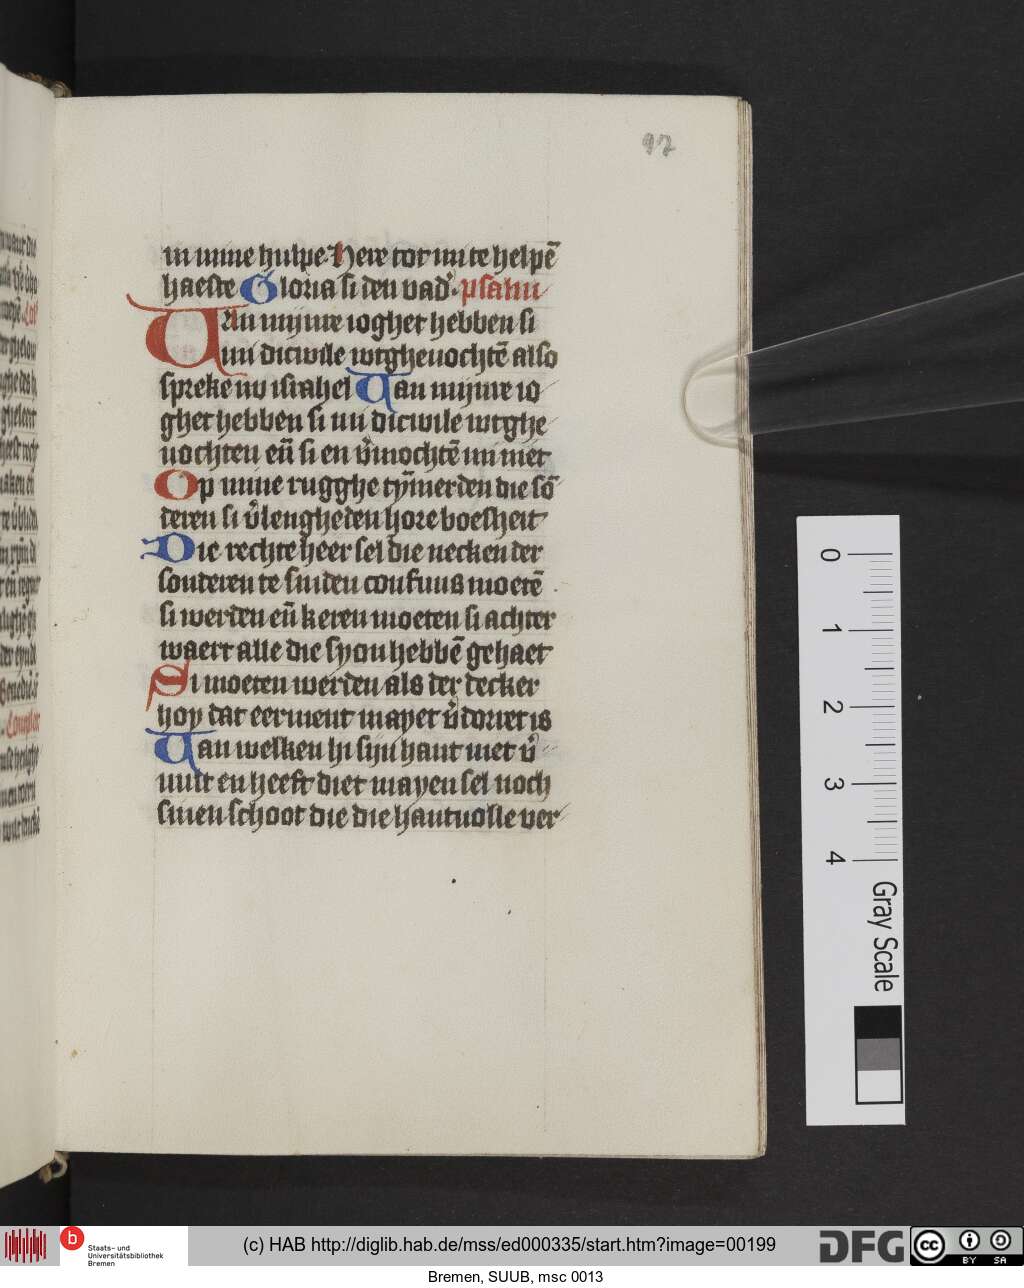 97
in mine hulpe. Here tot mi te helpē
haeste Gloria si den vad'. psalm
Uan mijnre ioghet hebben si
mi dicwile wtgheuochtē also
spreke nv israhel Uan mijnre io
ghet hebben si mi dicwile wtghe
uochten eñ si en v'mochtē mi niet
Op mine rugghe tȳmerden die sō
deren si v'lengheden hore boesheit
Die rechte heer sel die necken der
sonderen te sniden confuus moetē
si werden eñ keren moeten si achter
waert alle die syon hebbē gehaet
Si moeten werden als der decker
hoy dat eerment mayet v'dorret is
Uan welken hi sijn hant niet v'
uult en heeft diet mayen sel noch
sinen schoot die die hantuolle ver
0
1
2
3
4
Gray Scale
b
Staats- und
Universitätsbibliothek
Bremen
(c) HAB http://diglib.hab.de/mss/ed000335/start.htm?image=00199
DFG
cc
BY SA
Bremen, SUUB, msc 0013